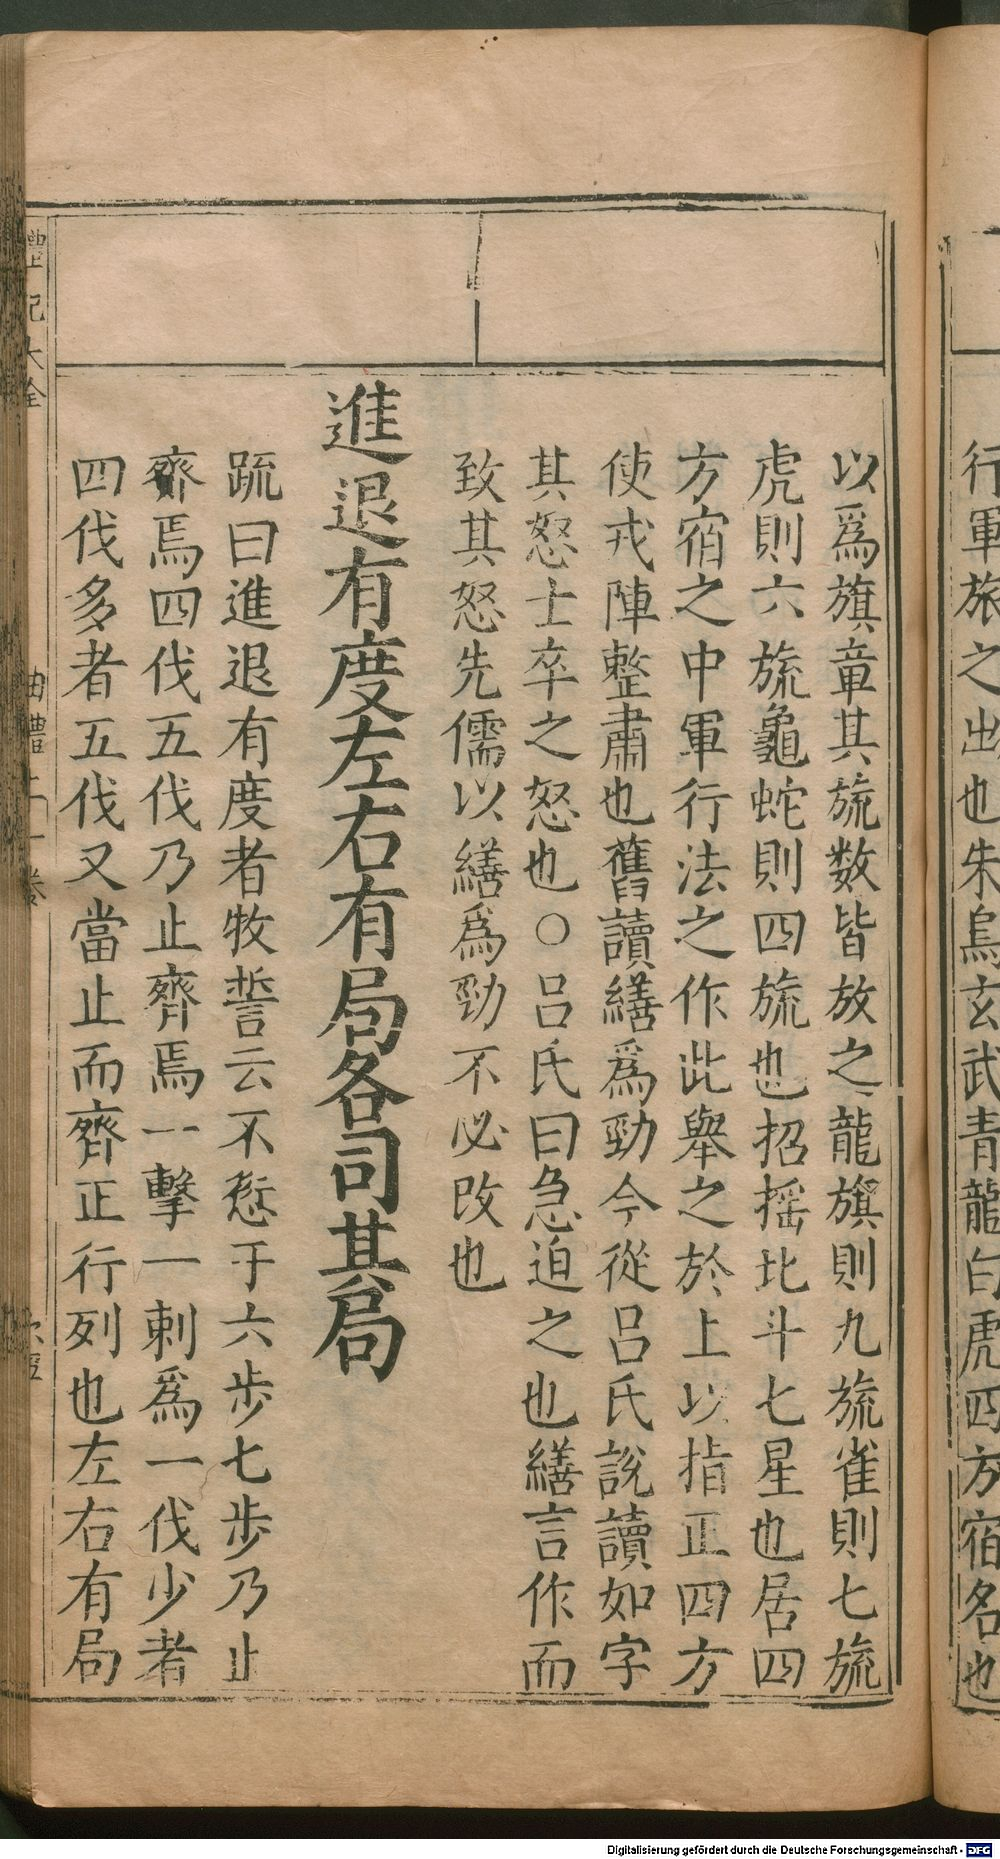 行軍旅之出也朱鳥玄武青龍白虎四方宿名也
以爲旗章其旒数皆放之龍旗則九旒雀則七旒
虎則六旒龜蛇則四旒也招摇北斗七星也居四
方宿之中軍行法之作此舉之於上以指正四方
使戎陣整肅也舊讀繕爲勁今從呂氏說讀如字
其怒士卒之怒也○呂氏曰急迫之也繕言作而
致其怒先儒以繕爲勁不必改也
進退有度左右有局各司其局
䟽曰進退有度者牧誓云不愆于六歩七歩乃止
齊焉四伐五伐乃止齊焉一擊一刺爲一伐少者
四伐多者五伐又當止而齊正行列也左右有局
禮記大全
曲禮上一卷
Digitalisierung gefördert durch die Deutsche Forschungsgemeinschaft - DFG